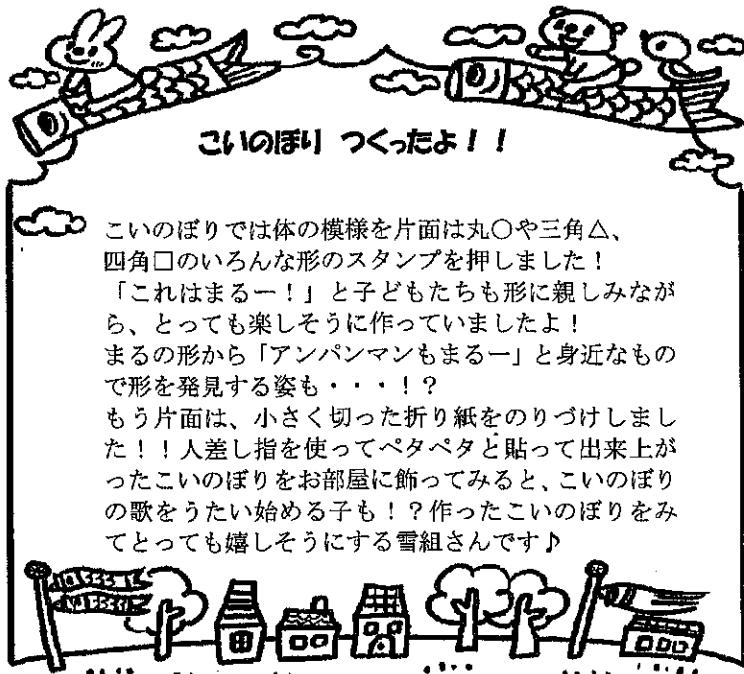 こいのぼり つくったよ！！
こいのぼりでは体の模様を片面は丸○や三角△、
四角□のいろんな形のスタンプを押しました！
「これはまるー！」と子どもたちも形に親しみなが
ら、とっても楽しそうに作っていましたよ！
まるの形から「アンパンマンもまるー」と身近なもの
で形を発見する姿も・・・！？
もう片面は、小さく切った折り紙をのりづけしまし
た！！人差し指を使ってペタペタと貼って出来上が
ったこいのぼりをお部屋に飾ってみると、こいのぼり
の歌をうたい始める子も！？作ったこいのぼりをみ
てとっても嬉しそうにする雪組さんです♪